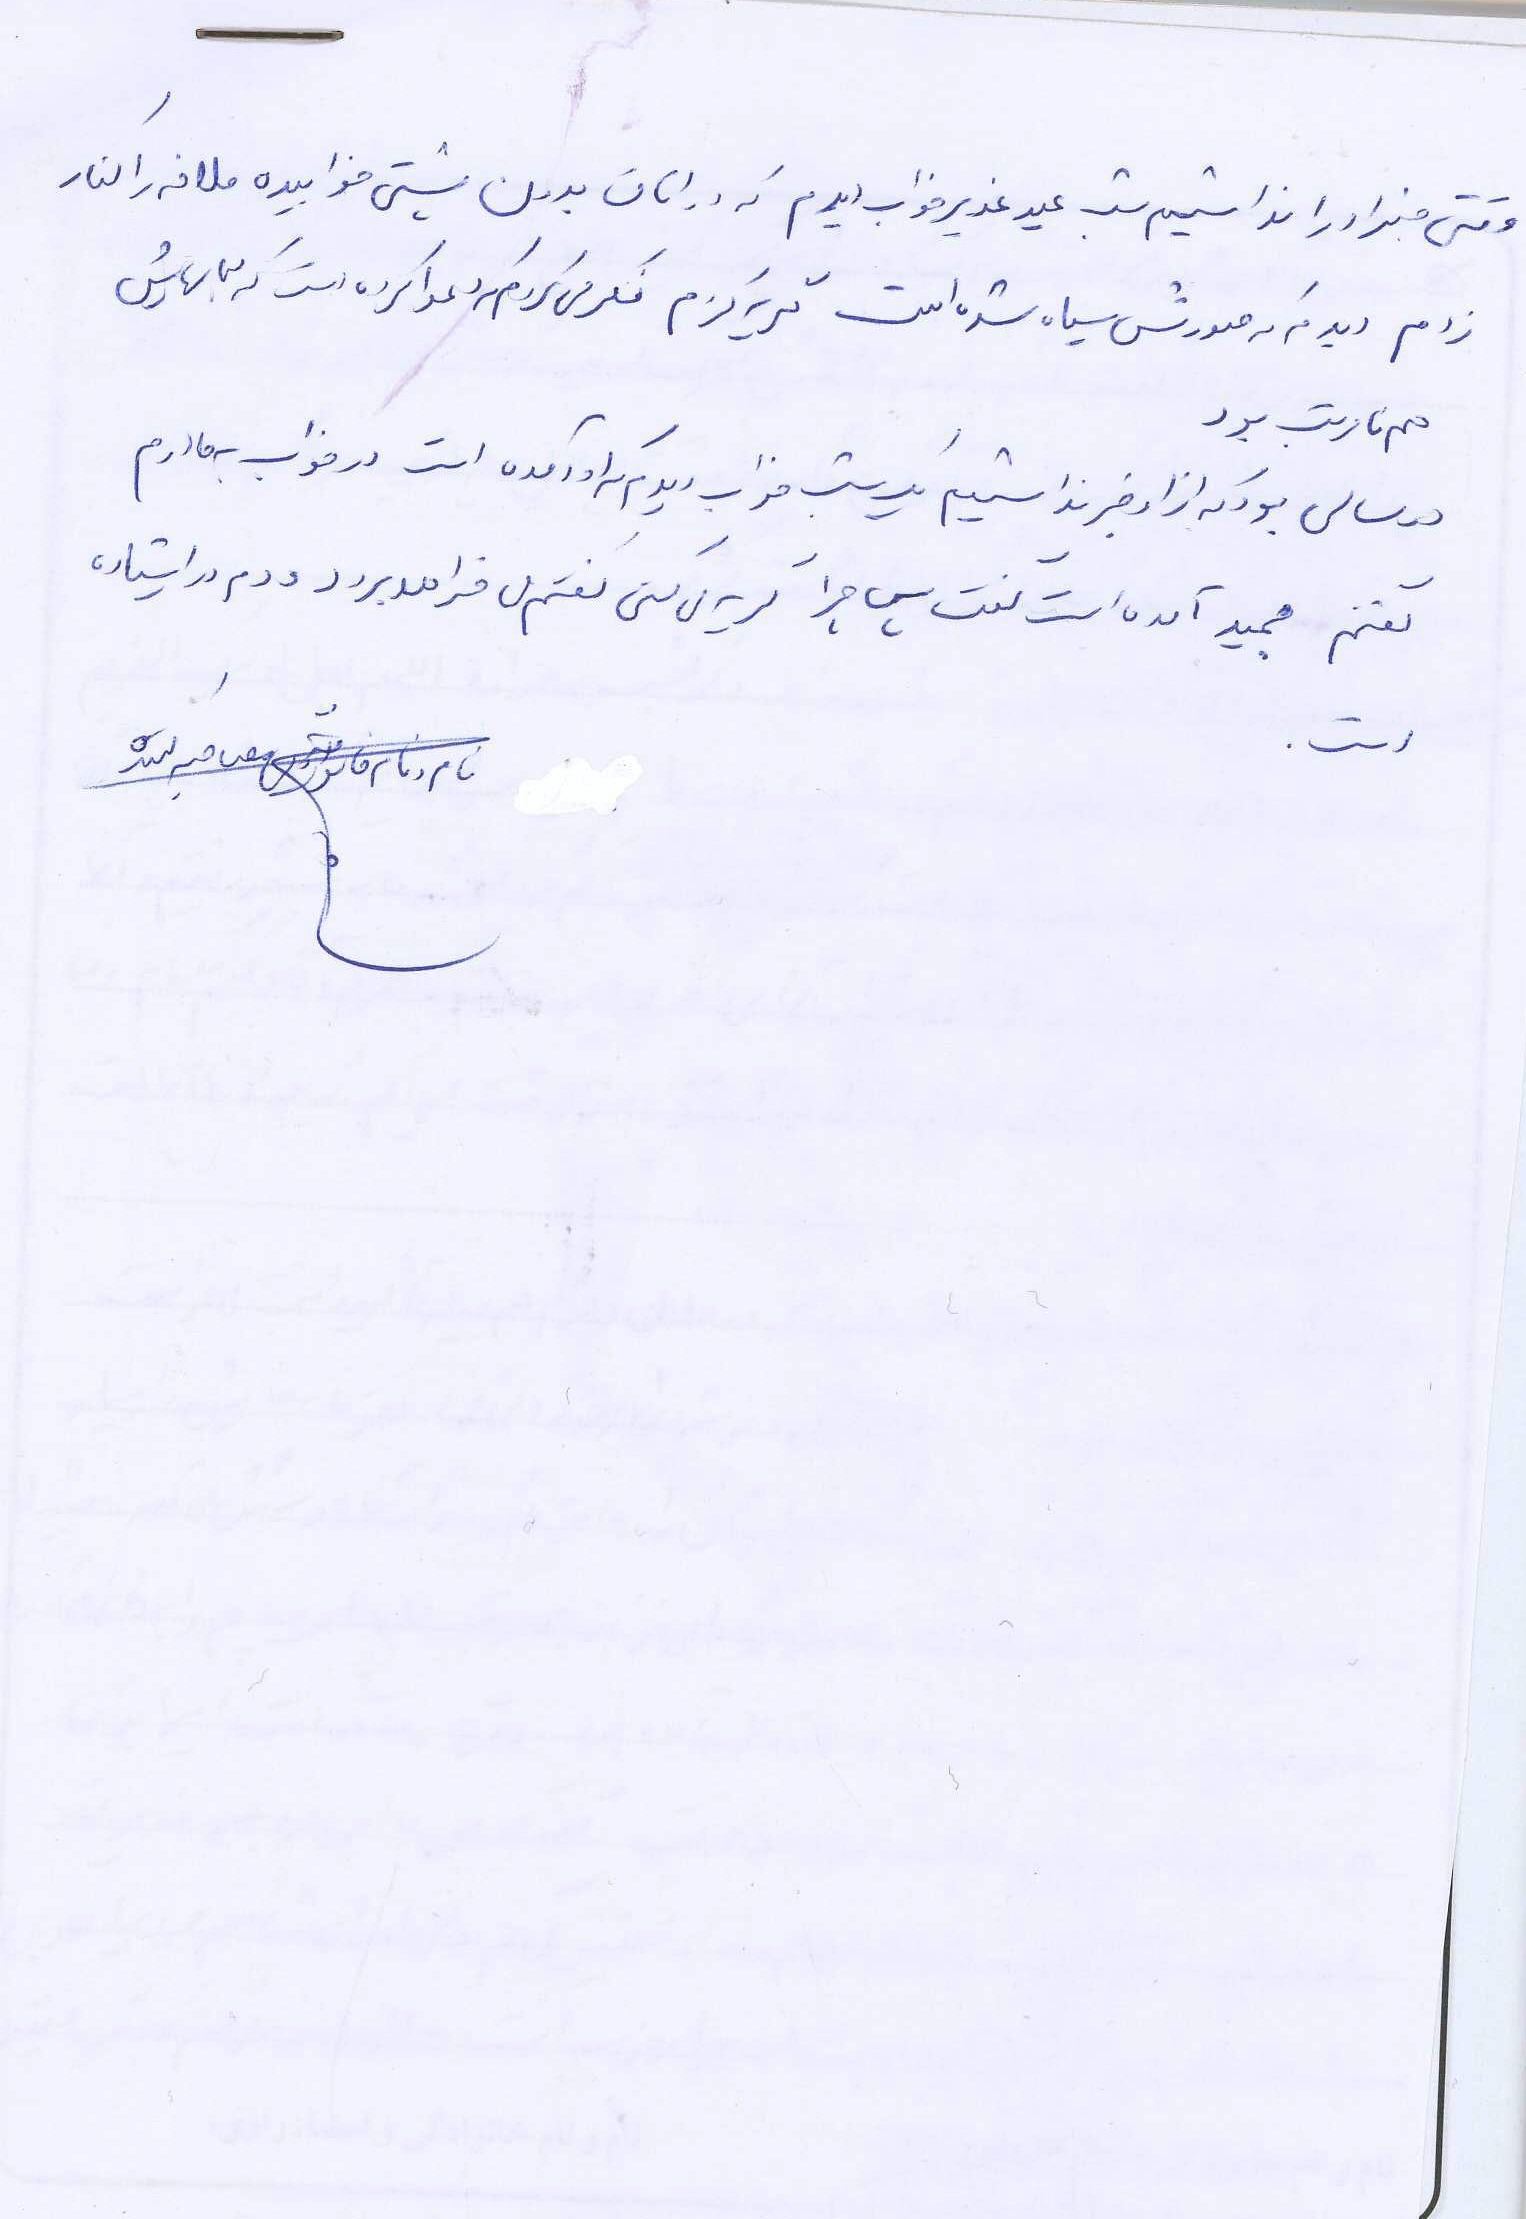 وقتی خبر او را نداشتیم شب عید غدیر خواب دیدم که در اتاق بدون پشتی خوابیده ملافه را کنار
زدم دیدم که صورتش سیاه شده است گریه کردم فکر می کردم که دعوا کرده است که لبهایش
هم ناراحت بود
دو سالی بود که از او خبر نداشتیم یک شب خواب دیدم که او آمده است در خواب به مادرم
گفتم مجید آمده است گفت پس چرا گریه می کنی گفتم می خواهد برود و دم در ایستاده
است.
نام و نام خانوادگی مصاحبه کننده